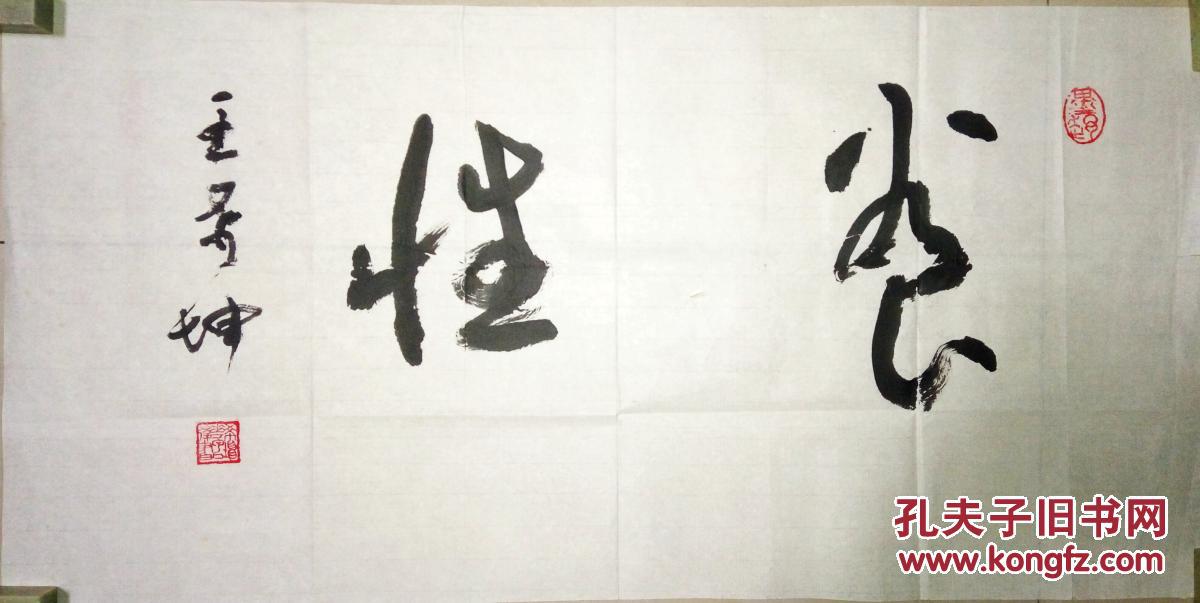 养性
王景坤
孔夫子旧书网
www.kongfz.com